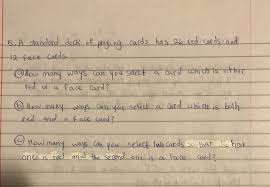 5. A standard deck of playing cards has 26 red cards and
12 face cards.
a) How many ways can you select a card which is either
red or a face card?
b) How many ways can you select a card which is both
red and a face card?
c) How many ways can you select two cards so that the first
one is red and the second one is a face card?